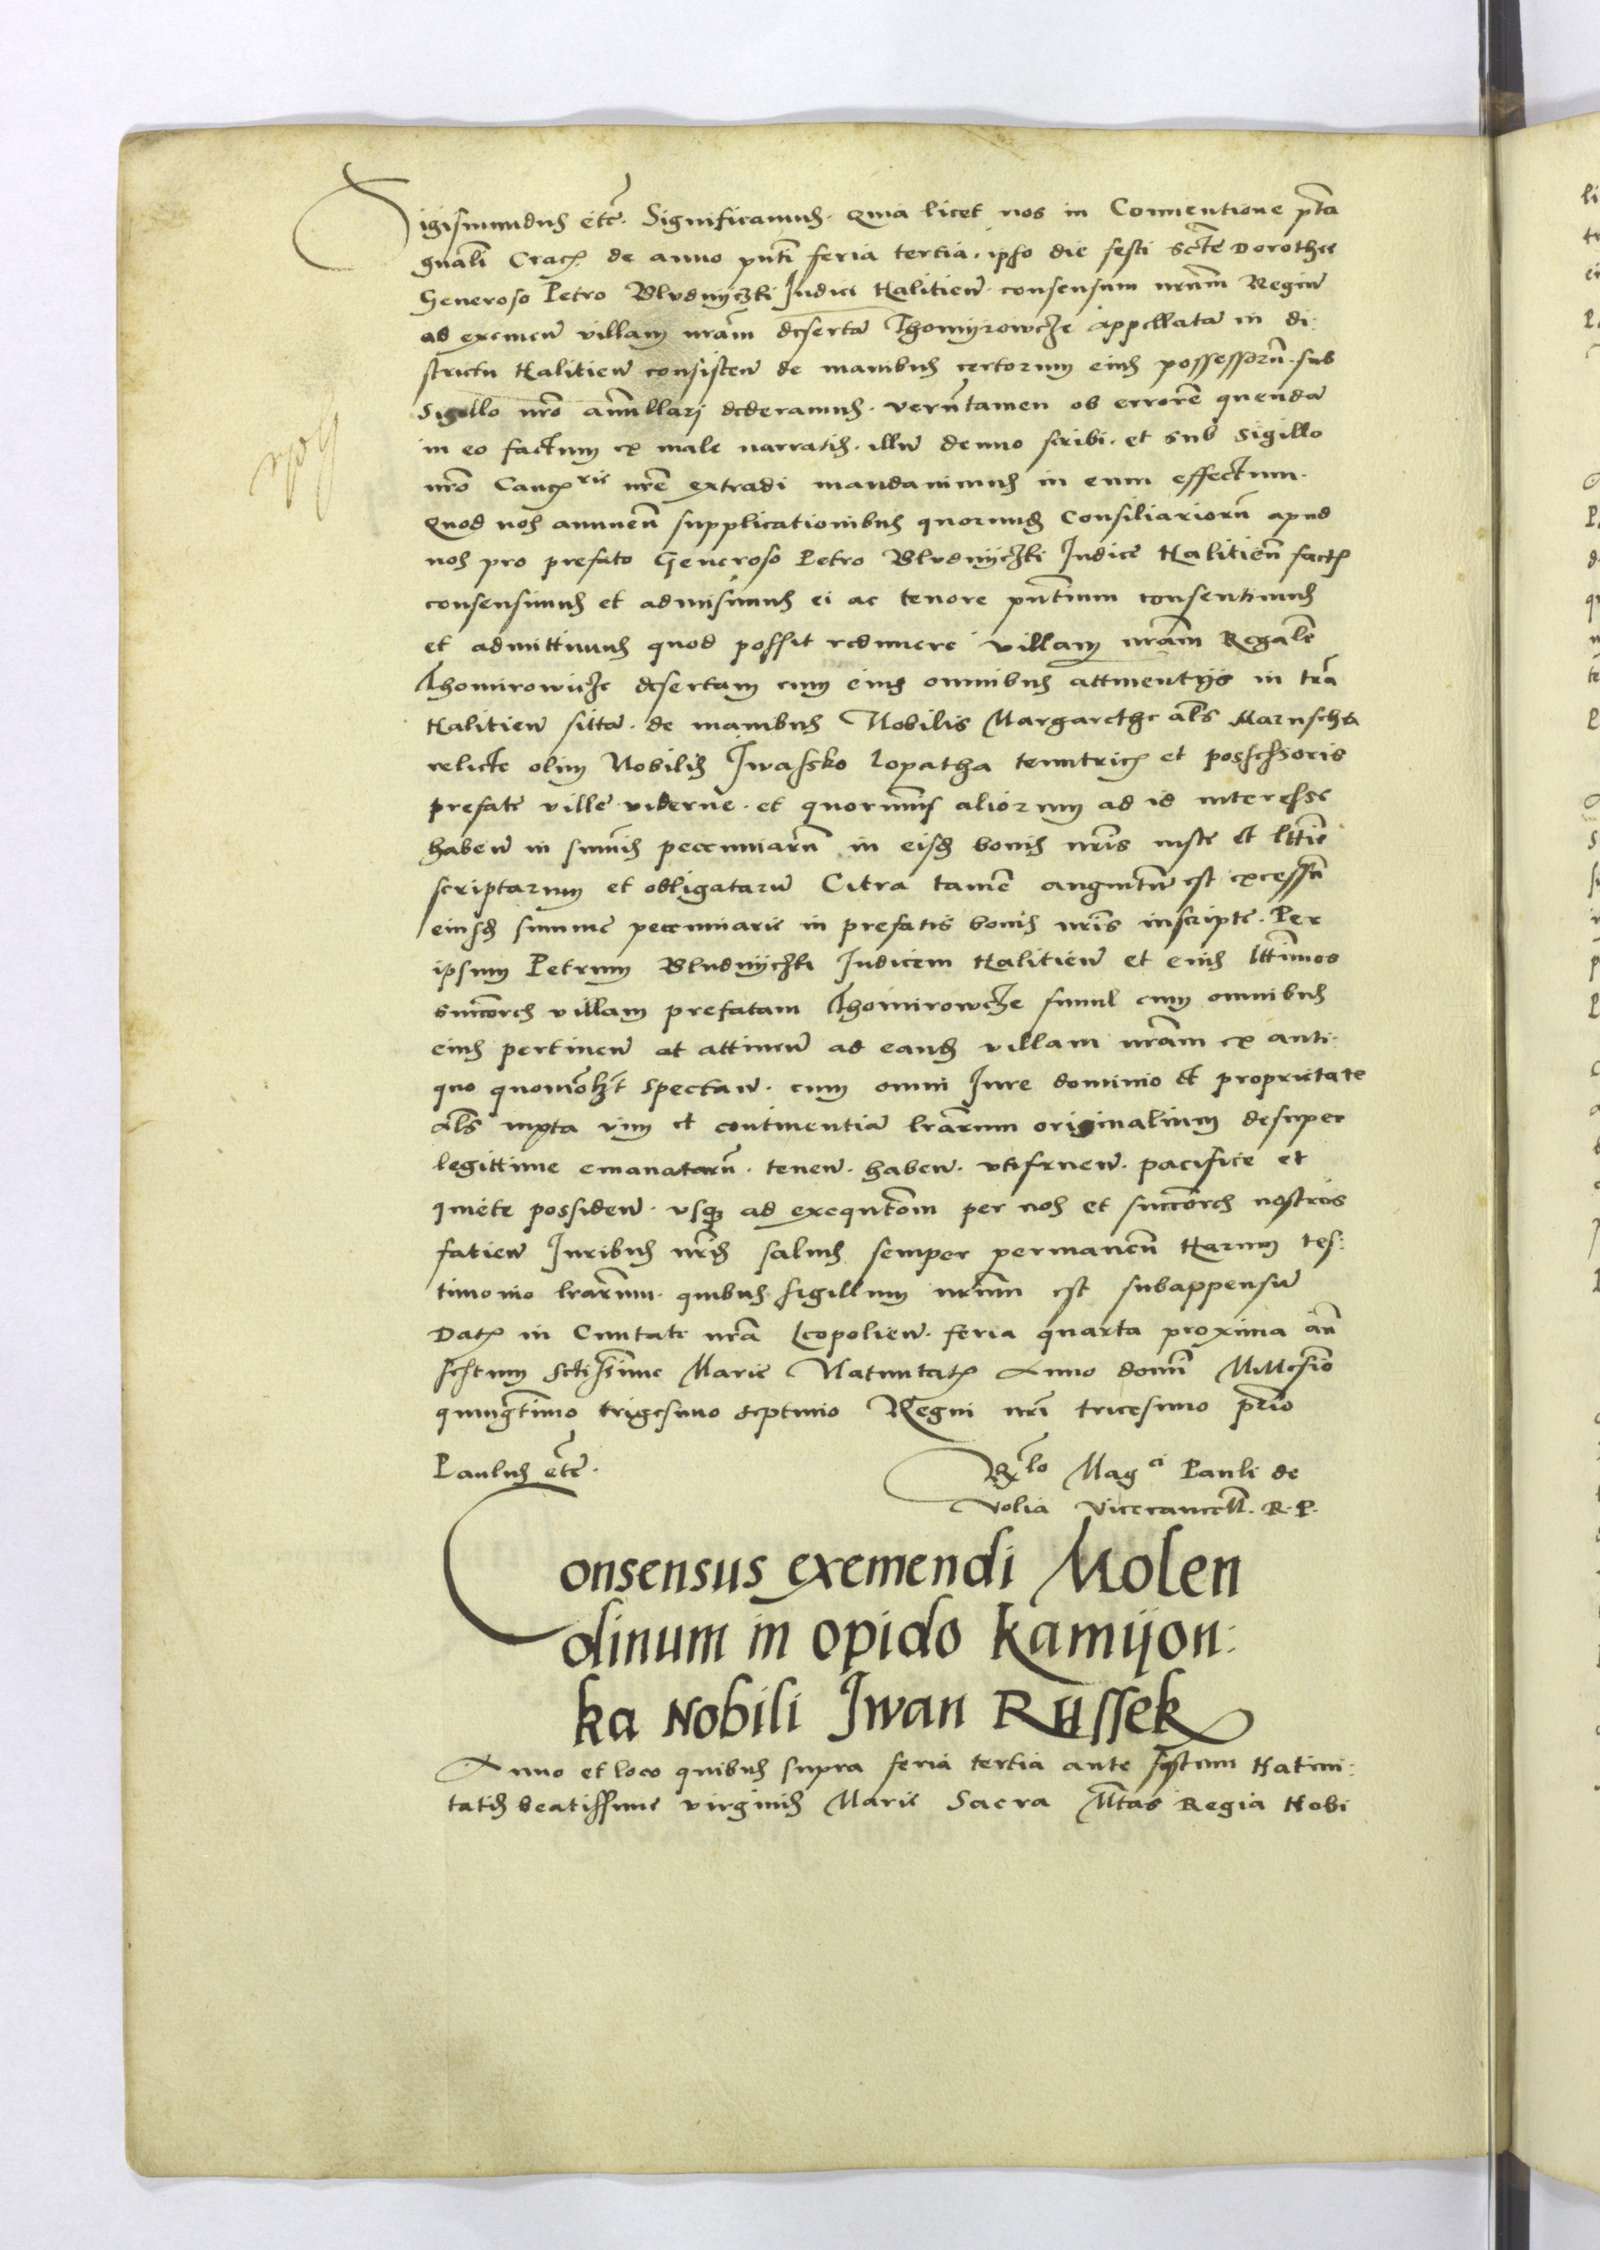 Sigismundus etc̄. Significamus. Quia licet nos in Conventione p̄ta
gnāli Crac. de anno pn̄ti feria tertia. ipso die festi Scte Dorothee
Generoso Petro Bludnyczki Iudici Halicien̄. consensum nrūm Regiū
ad exemen̄ villam nrām desertā Thomyrowcze appellatā in di:
strictu Halicien̄ consisten̄ de manibus certorum eius possessorū. sub
Sigillo nrō annullari dederamus. verūtamen ob errorē quendā
in eo factum ex male narratis. illū denuo scribi. et sub Sigillo
nrō Canc.rie nrē extradi mandavimus in eum effectum.
Quod nos annuen̄ supplicationibus quorund. Consiliariorū apud
nos pro prefato Generoso Petro Bludnyczki Iudice Halicien̄ fact.
consensimus et admisimus ei ac tenore pn̄tium consentimus
et admittimus quod possit redimere villam nrām Regalē
Thomirowicze desertam cum eius omnibus attinentijs in trā
Halicien̄ sittā. de manibus Nobilis Margarethe al̄s Maruscha
relicte olim Nobilis Iwassko Lopatha tenutric. et possessoris
prefate ville moderne. et quorumvis aliorum ad id interesse
haben̄ in sum̄is pecuniarū in eisd. bonis nrīs iuste et ltt̄ie
scriptarum et obligatarū Citra tamē augmtū est excessū
eiusd. summe pecuniarie in prefatis bonis nrīs inscripte. Per
ipsum Petrum Bludnyczki Iudicem Halicien̄ et eius ltt̄imos
succōres villam prefatam Thomirowcze simul cum omnibus
eius pertinen̄ at attinen̄ ad eand. villam nrām ex anti:
quo quomōlzt spectan̄. cum omni Iure dominio et proprietate
al̄s iuxta vim et continentiā lrārum originalium desuper
legittime emanatarū. tenen̄. haben̄. utifruen̄. pacifice et
quiete possiden̄. usq. ad exequtōem per nos et succōres nostros
fatien̄ Iuribus nrīs salvis semper permanen̄ Harum tes:
timonio lrārum. quibus sigillum nrūm est subappensū
Dat. in Civitate nrā Leopolien̄. feria quarta proxima an̄
festum Sctissime Marie Nativitat. Anno domi Millesīo
quingētimo trigesimo septimo Regni nrī tricesimo prīo
Paulus etc̄.
Relo Magci Pauli de
Volia Vicecancell̄. R. P.
Consensus exemendi Molen
dinum in opido Kamyon:
ka Nobili Iwan Russek
Anno et loco quibus supra feria tertia ante festum Nativi:
tatis beatissime virginis Marie Sacra M̄tas Regia Nobi